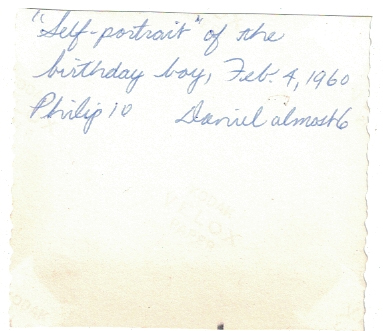 "Self-portrait" of the
birthday boy, Feb. 4, 1960
Philip 10 Daniel almost 6